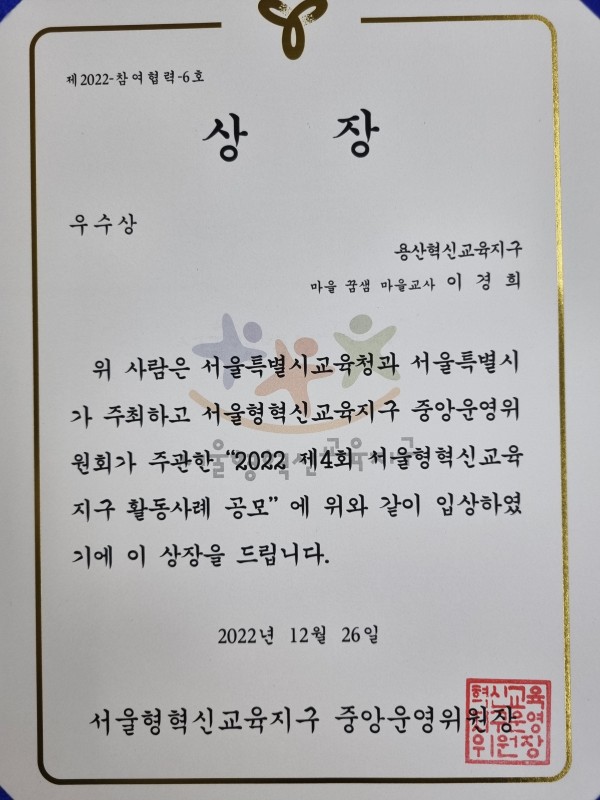 제2022-참여협력-6호
상 장
우수상
용산혁신교육지구
마을 꿈샘 마을교사 이 경 희
위 사람은 서울특별시교육청과 서울특별시
가 주최하고 서울형혁신교육지구 중앙운영위
원회가 주관한 “2022 제4회 서울형혁신교육
지구 활동사례 공모” 에 위와 같이 입상하였
기에 이 상장을 드립니다.
2022년 12월 26일
서울형혁신교육지구 중앙운영위원장
혁신교육
위원장